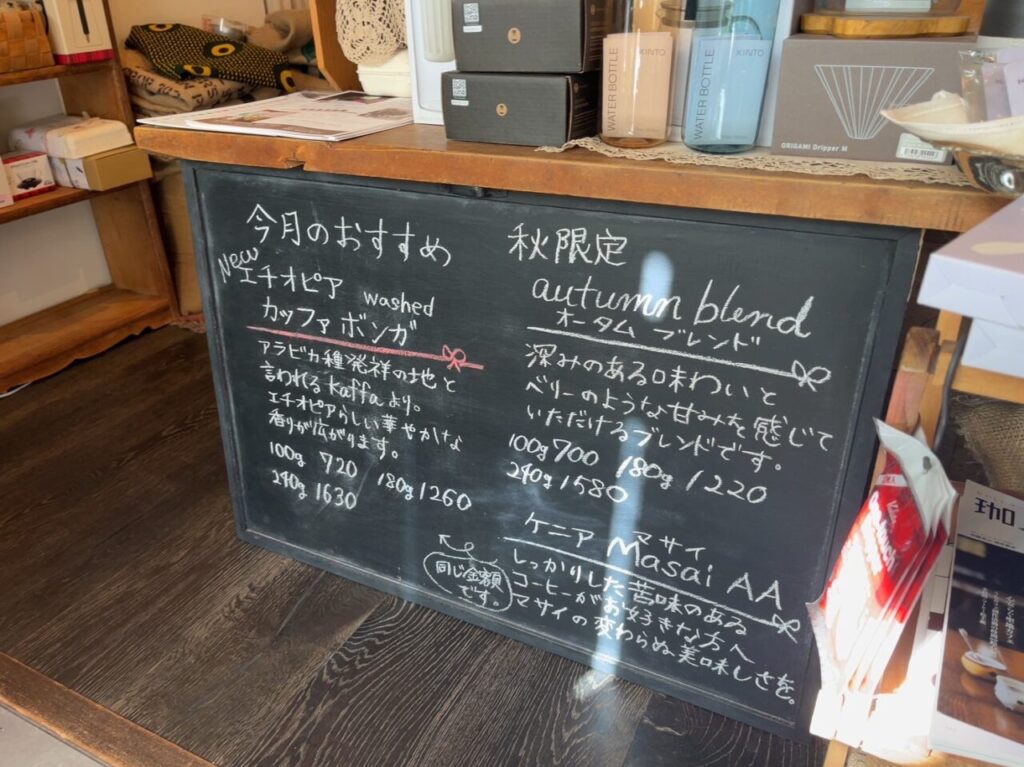 WATER BOTTLE
KINTO
WATER BOTTLE
KINTO
ORIGAMI Dripper M
今月のおすすめ
New
エチオピア washed
カッファ ボンガ
アラビカ種発祥の地と
言われるkaffaより。
エチオピアらしい華やかな
香りが広がります。
100g 720 180g 1260
240g 1630
秋限定
autumn blend
オータム ブレンド
深みのある味わいと
ベリーのような甘みを感じて
いただけるブレンドです。
100g 700 180g 1220
240g 1580
同じ金額
です。
ケニア マサイ
Masai AA
しっかりした苦味のある
コーヒーがお好きな方へ
マサイの変わらぬ美味しさを。
珈